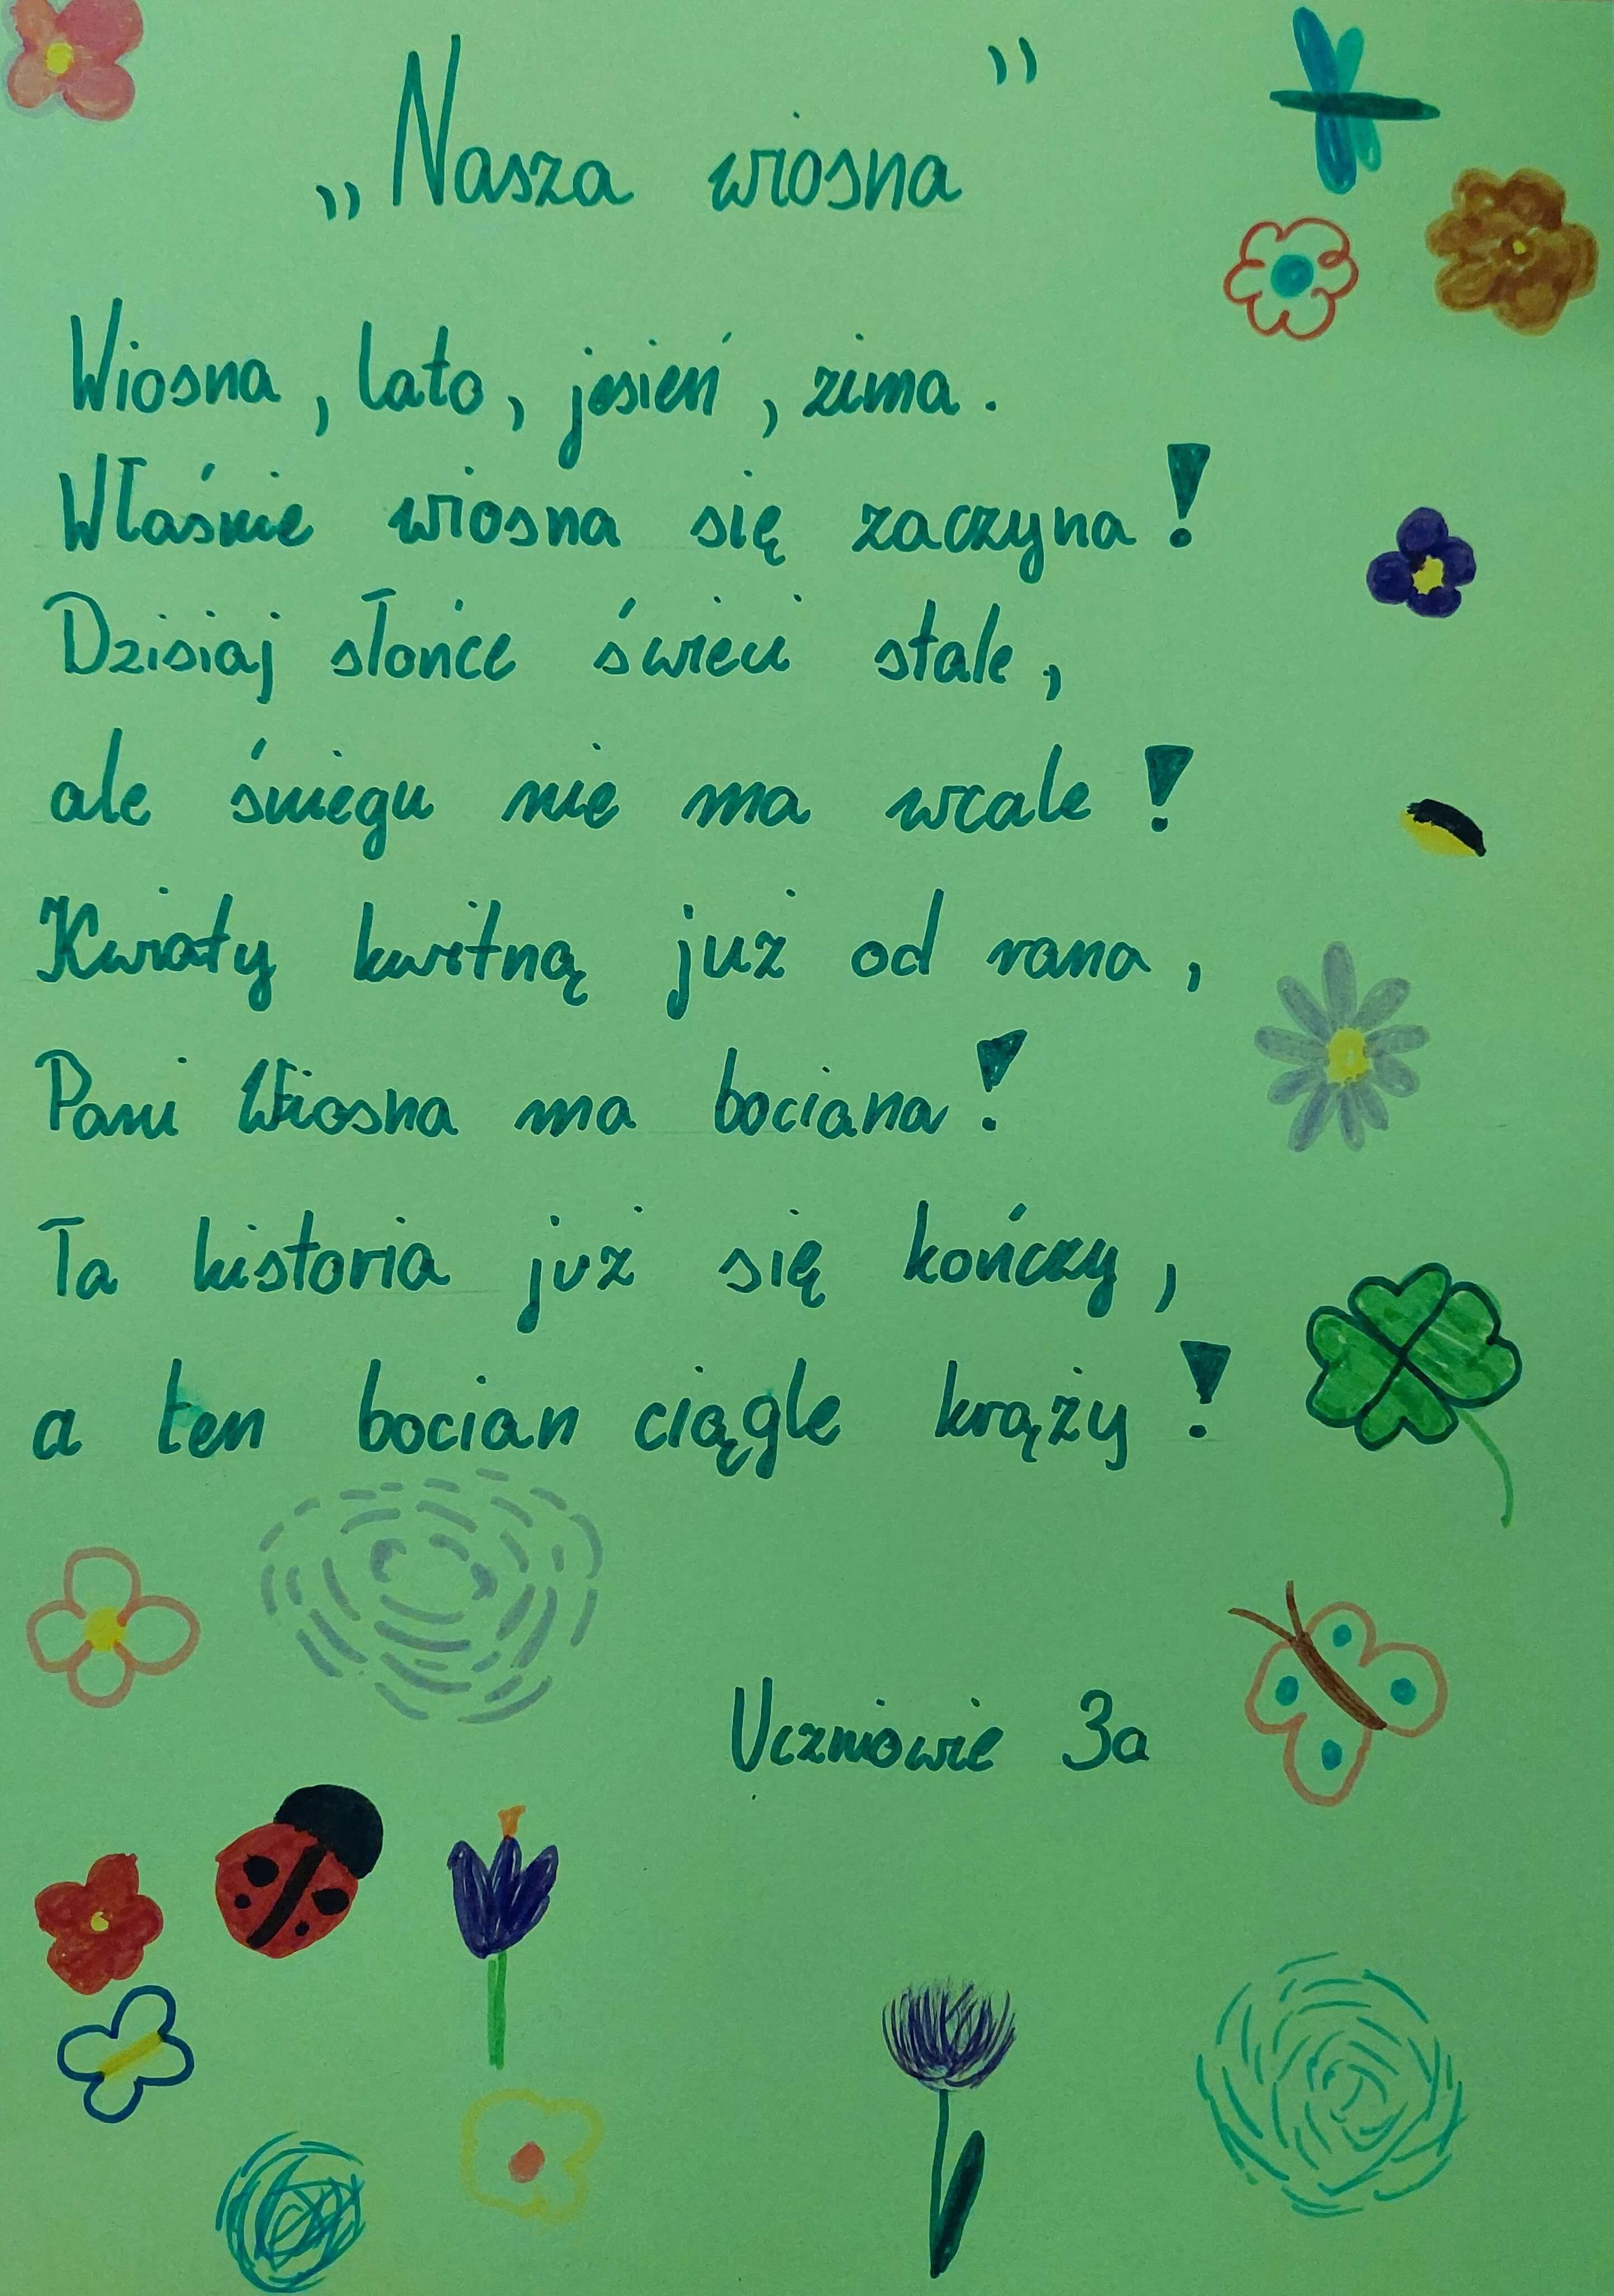 „Nasza wiosna”
Wiosna, lato, jesień, zima.
Właśnie wiosna się zaczyna!
Dzisiaj słońce świeci stale,
ale śniegu nie ma wcale!
Kwiaty kwitną już od rana,
Pani Wiosna ma bociana!
Ta historia już się kończy,
a ten bocian ciągle krąży!
Uczniowie 3a